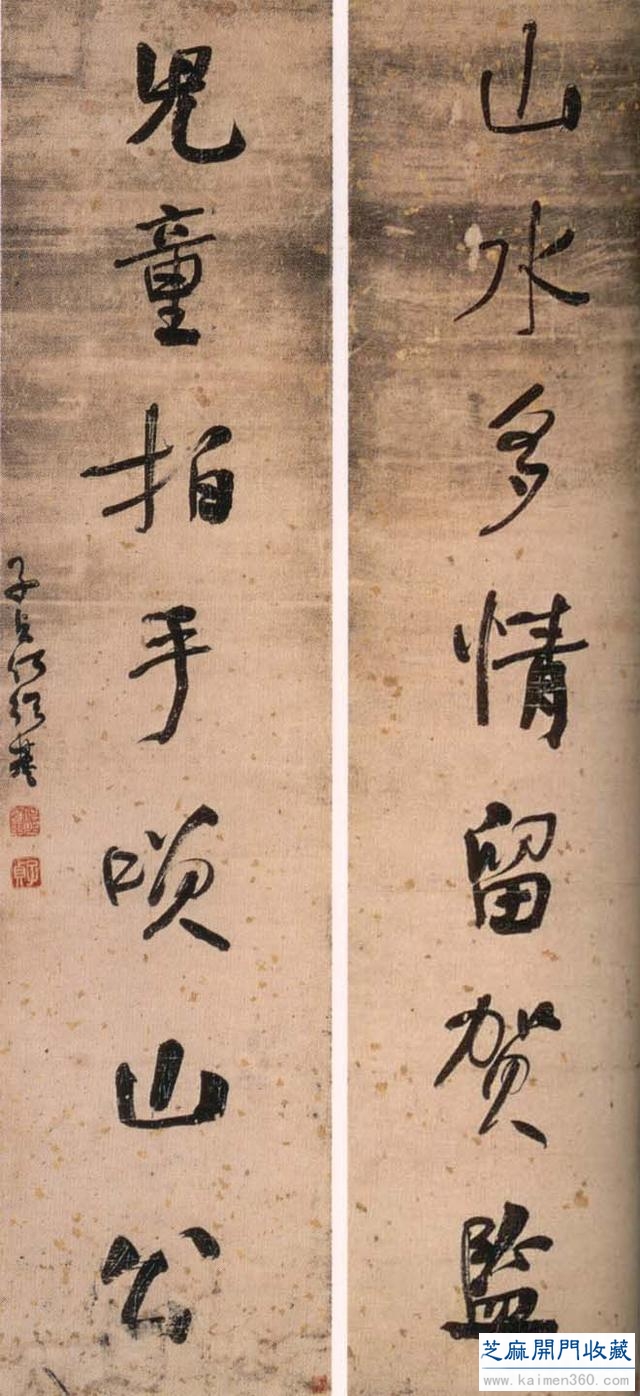 山水多情留賀監
兒童拍手喚山公
子貞何紹基
子貞
芝麻開門收藏
www.kaimen360.com